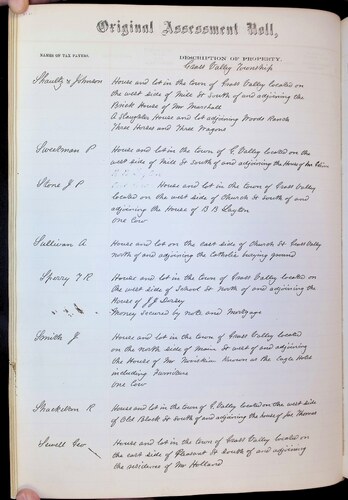 Original Assessment Roll,
NAMES OF TAX PAYERS.
DESCRIPTION OF PROPERTY.
Grass Valley Township
Shaultz & Johnson House and lot in the town of Grass Valley located on
the west side of Mill St South of and adjoining the
Brick House of Mr Marshall
A Slaughter House and lot adjoining Woods Ranch
Three Horses and Three Wagons
Sweetman P House and lot in the town of G. Valley located on the
west side of Mill St south of and adjoining the House of
Stone J P House and lot in the town of Grass Valley
located on the west side of Church St south of and
adjoining the House of B B Layton
One Cow
Sullivan A House and lot on the east side of Church St Grass Valley
north of and adjoining the Catholic burying ground
Sperry T R House and lot in the town of Grass Valley located on
the west side of School St north of and adjoining the
House of J J Dorsey
Money secured by note and mortgage
Smith J House and lot in the town of Grass Valley located
on the north side of Main St west of and adjoining
the House of Mr Known as the Eagle Hotel
including Furniture
One Cow
Shackelton R House and lot in the town of G. Valley located on the west side
of Old Block St south of and adjoining the house of Jas Thomas
Sewell Geo House and lot in the town of Grass Valley located on
the east side of Pleasant St South of and adjoining
the residence of Mr Holland